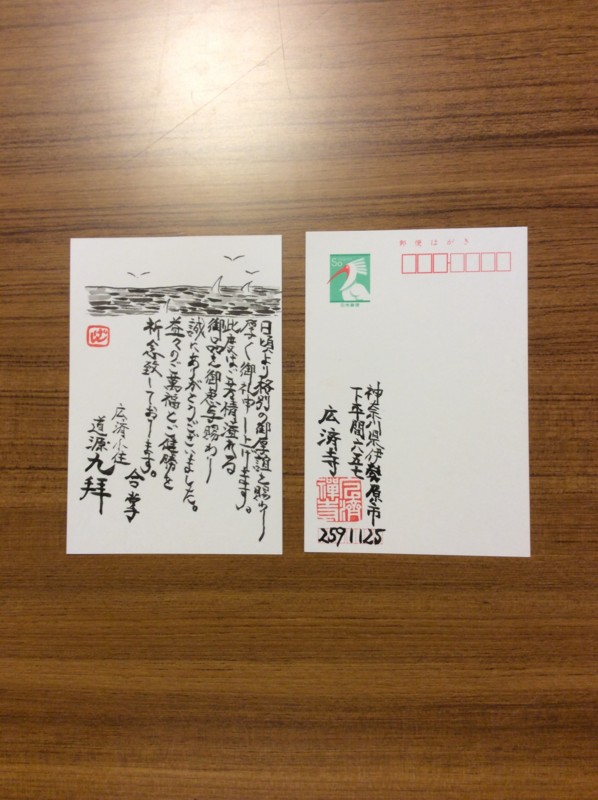 日頃より格別の御厚誼を賜わり
厚く御礼申し上げます。
此度はご芳情溢れる
御品を御恵与賜わり
誠にありがとうございました。
益々のご萬福とご健勝を
祈念致しております。
合掌
広済小住
道源九拝
郵便はがき
50
日本郵便
神奈川県伊勢原市
下平間六五七
広済寺
広濟禅寺
2591125